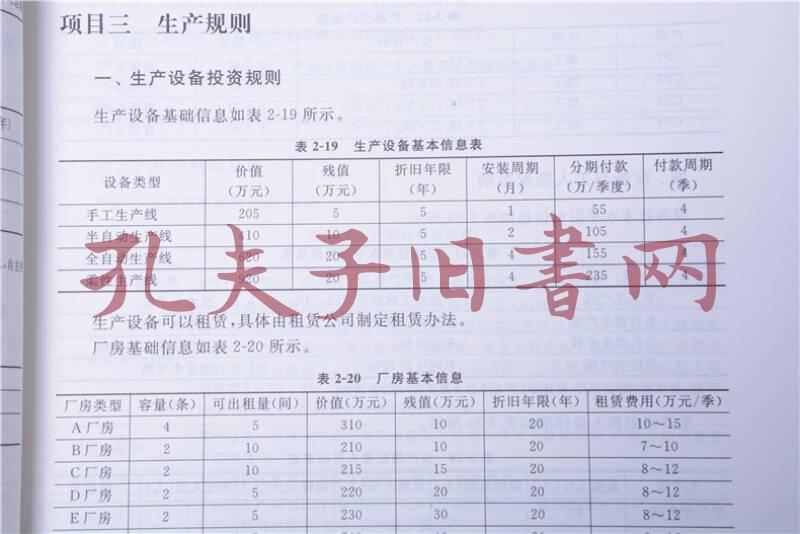 项目三 生产规则
一、生产设备投资规则
生产设备基础信息如表 2-19 所示。
表 2-19 生产设备基本信息表
设备类型 价值(万元) 残值(万元) 折旧年限(年) 安装周期(月) 分期付款(万/季度) 付款周期(季)
手工生产线 205 5 5 1 55 4
半自动生产线 410 10 5 2 105 4
全自动生产线 620 20 5 4 155 4
柔性生产线 920 20 5 4 235 4
孔夫子旧书网
生产设备可以租赁,具体由租赁公司制定租赁办法。
厂房基础信息如表 2-20 所示。
表 2-20 厂房基本信息
厂房类型 容量(条) 可出租量(间) 价值(万元) 残值(万元) 折旧年限(年) 租赁费用(万元/季)
A 厂房 4 5 310 10 20 10~15
B 厂房 2 10 210 10 20 7~10
C 厂房 2 10 215 15 20 8~12
D 厂房 2 5 220 20 20 8~12
E 厂房 2 5 230 30 20 8~12